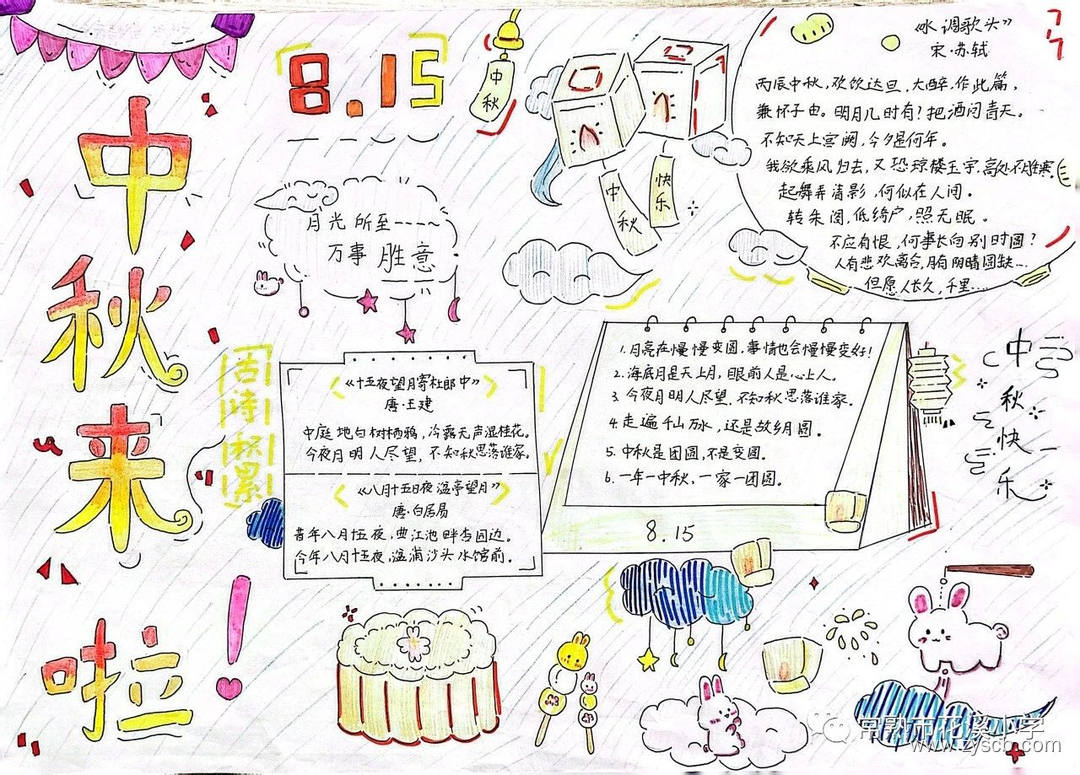 中秋来啦!
8.15
中秋
中秋
快乐
月光所至----
万事胜意
《水调歌头》
宋·苏轼
丙辰中秋,欢饮达旦,大醉,作此篇,
兼怀子由。明月几时有?把酒问青天。
不知天上宫阙,今夕是何年。
我欲乘风归去,又恐琼楼玉宇,高处不胜寒
起舞弄清影,何似在人间。
转朱阁,低绮户,照无眠。
不应有恨,何事长向别时圆?
人有悲欢离合,月有阴晴圆缺…
但愿人长久,千里…
古诗积累
《十五夜望月寄杜郎中》
唐·王建
中庭地白树栖鸦,冷露无声湿桂花。
今夜月明人尽望,不知秋思落谁家。
《八月十五日夜湓亭望月》
唐·白居易
昔年八月十五夜,曲江池畔杏园边。
今年八月十五夜,湓浦沙头水馆前。
1.月亮在慢慢变圆,事情也会慢慢变好!
2.海底月是天上月,眼前人是心上人。
3.今夜月明人尽望,不知秋思落谁家。
4.走遍千山万水,还是故乡月圆。
5.中秋是团圆,不是变圆。
6.一年一中秋,一家一团圆。
8.15
中秋快乐
常熟市花溪小学
www.zyscb.com